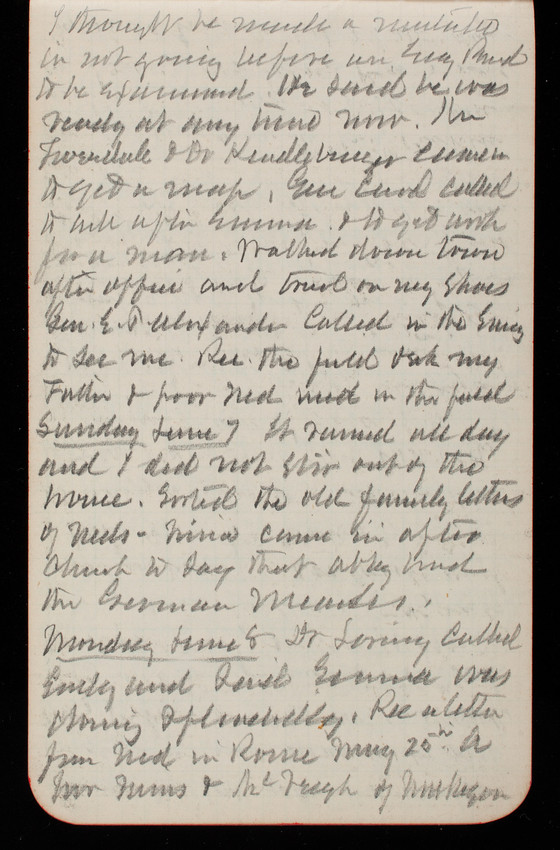 I thought he made a mistake
in not going before an Exg Bord
to be examined. He said he was
ready at any time now. Mr
& Dr came in
to get a map. Gen Casey called
to ask after Emma & to get work
for a man. Walked down town
after office and tried on my shoes
Gen. E. P. Alexander Called in the Eving
to see me. Rec. the field desk my
Father & poor Ned used in the field
Sunday June 7 It rained all day
and I did not stir out of the
house. Sorted the old family letters
of Neds - Nina came in after
church to say that abby had
the German Measles.
Monday June 8 Dr Loring Called
Early and said Emma was
doing splendidly. Rec a letter
from Ned in Rome May 25th. A
& of Muskegon